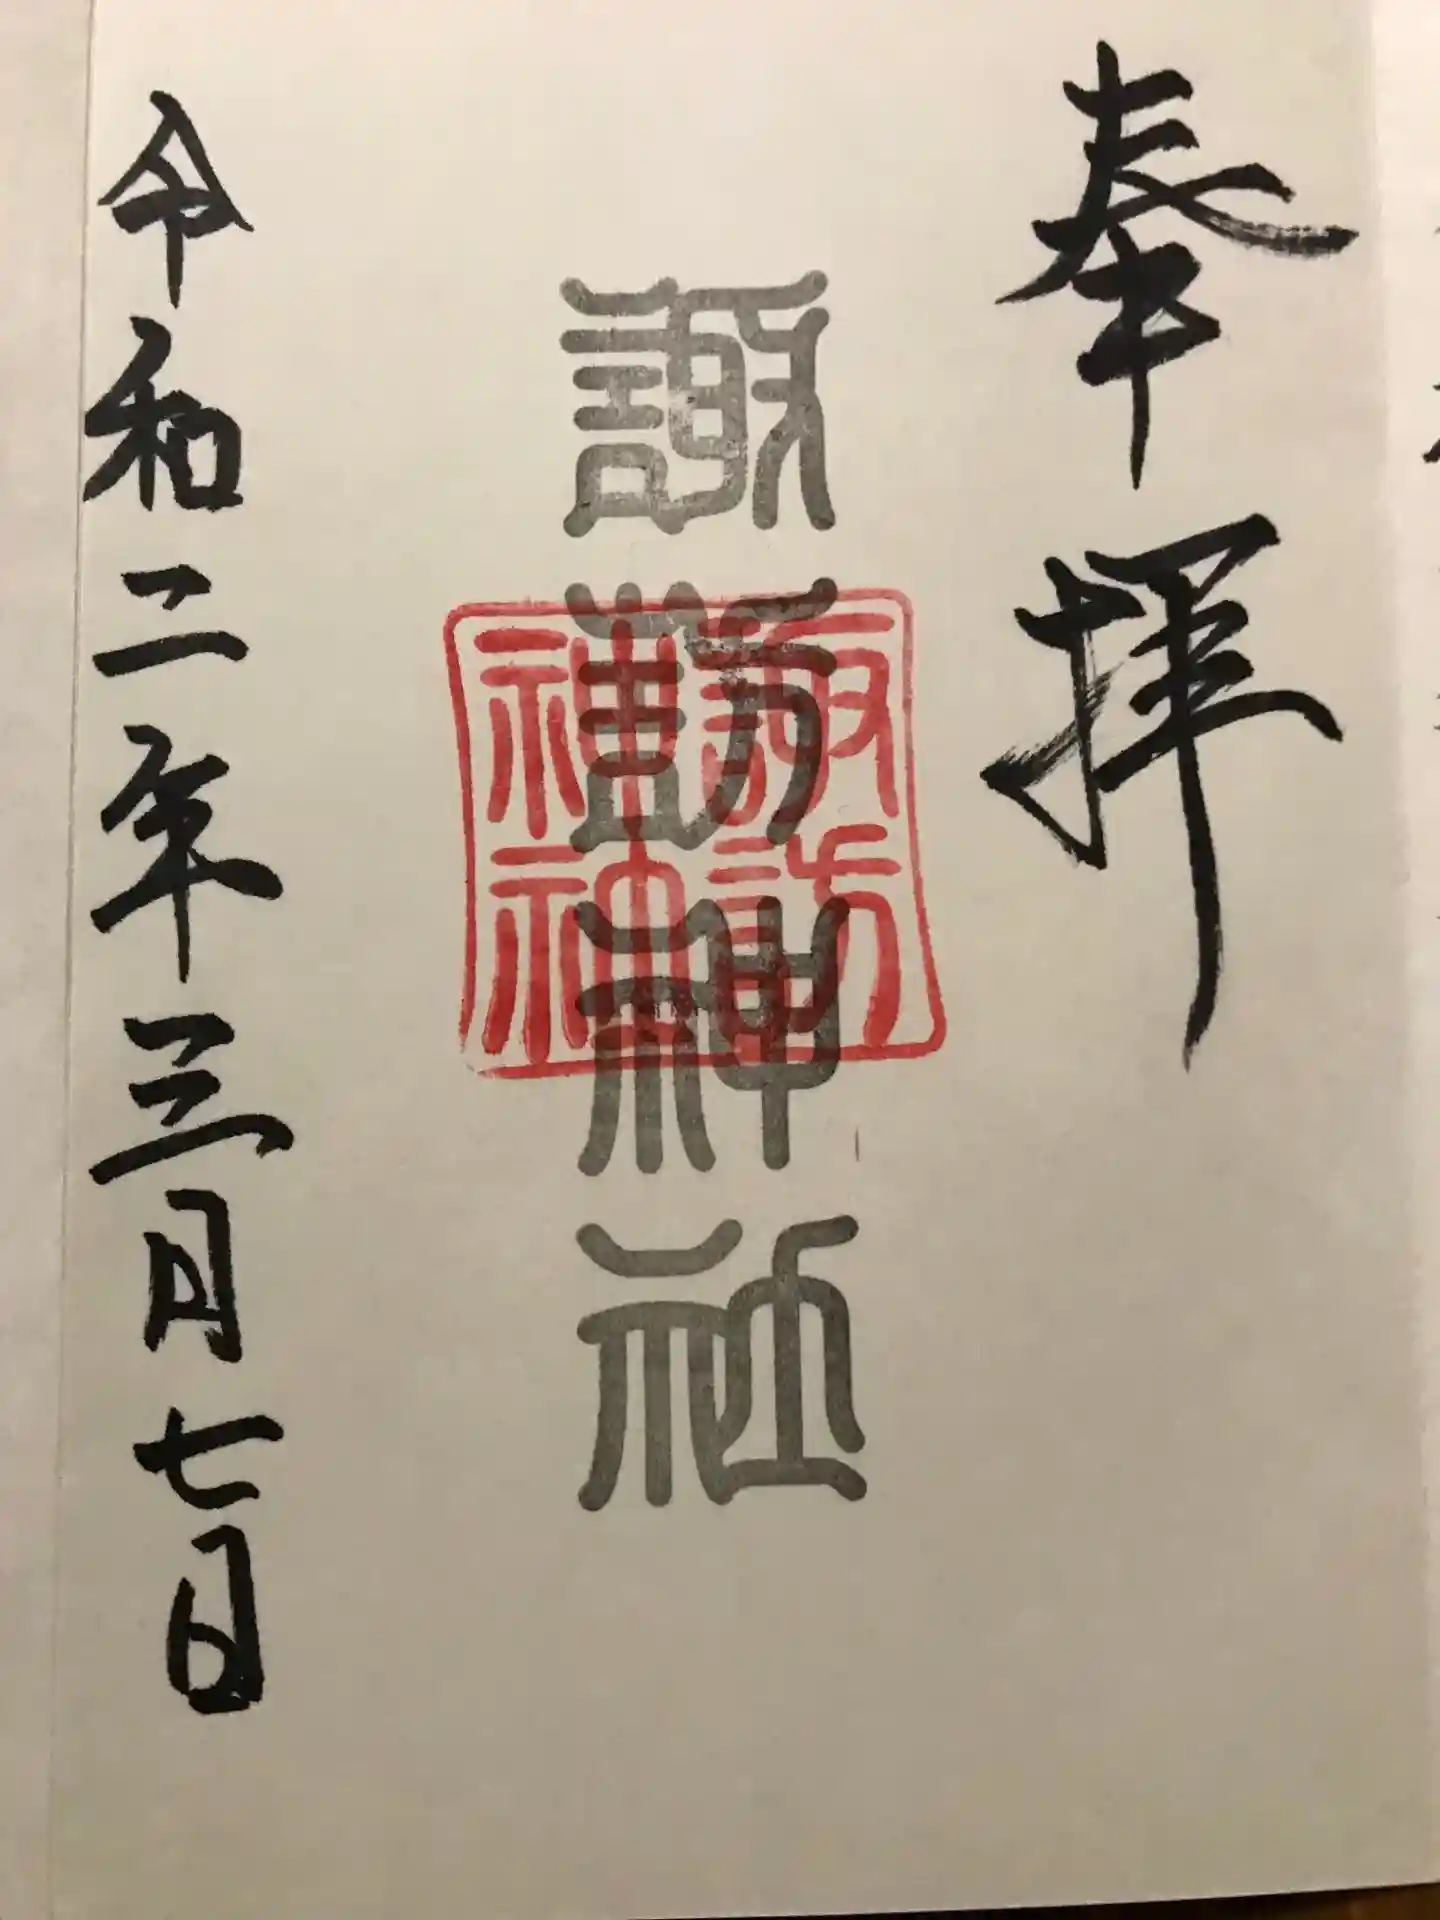 奉拝
諏訪神社
諏訪
令和二年三月七日